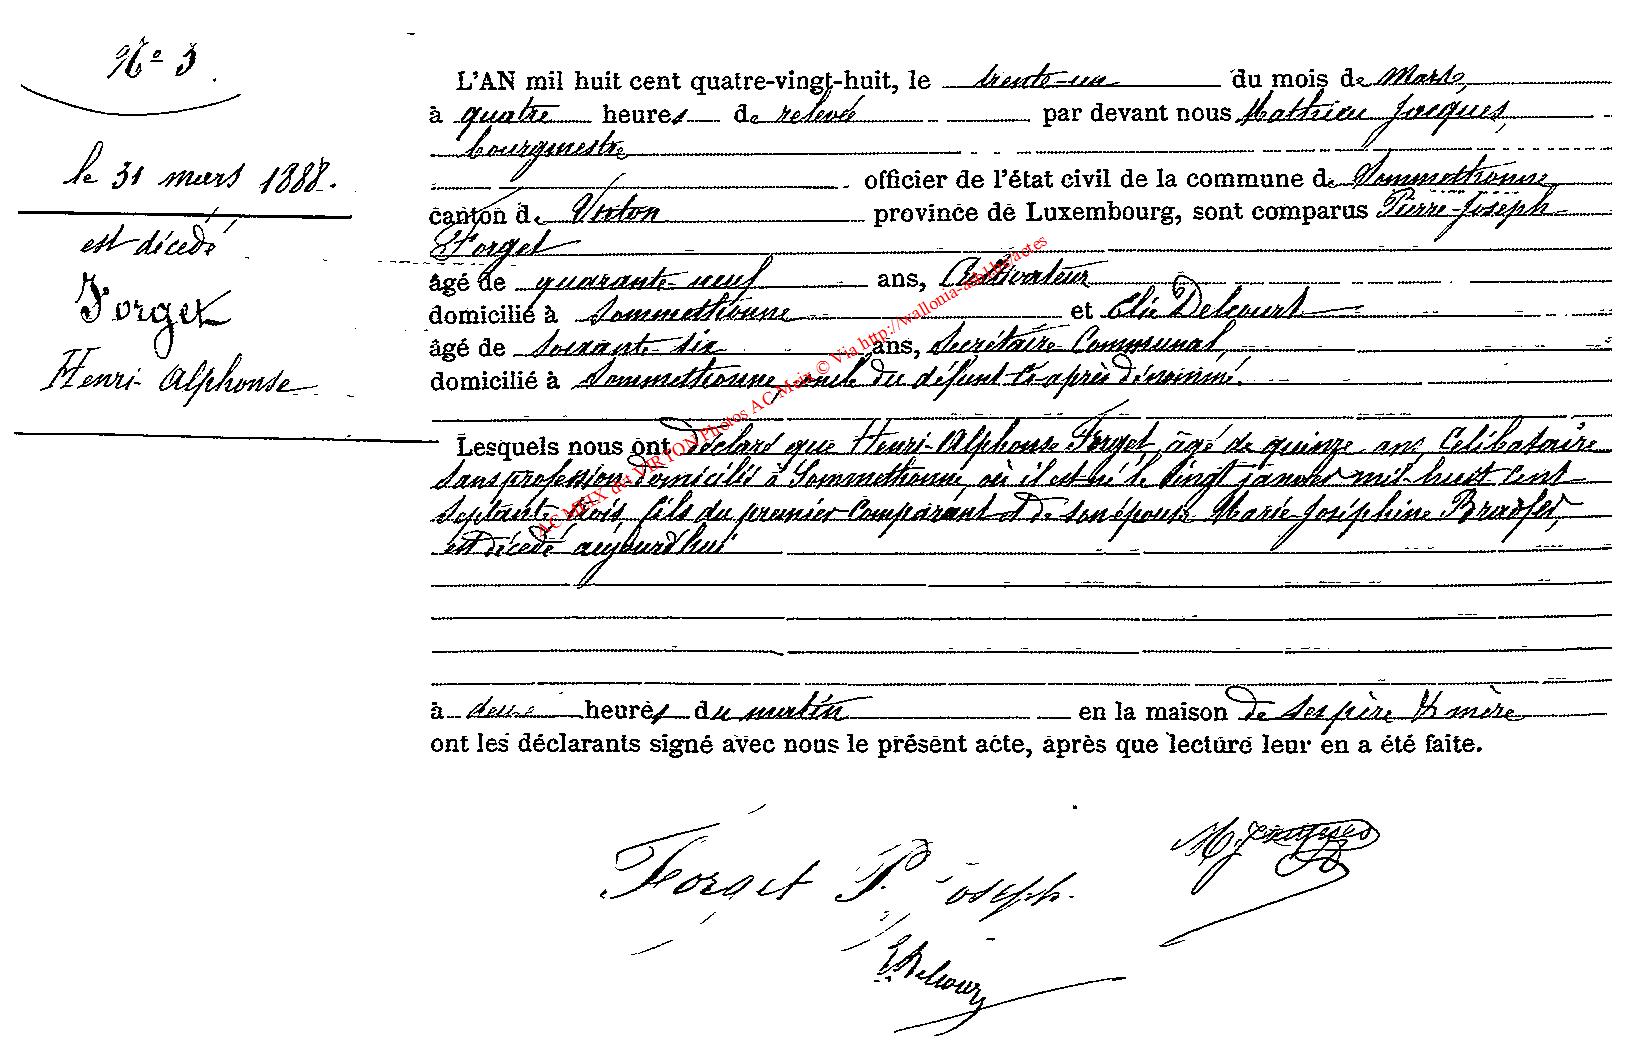 No 3.
le 31 mars 1888.
est décédé
Forget
Henri Alphonse
L'AN mil huit cent quatre-vingt-huit, le trente-un du mois de Mars,
à quatre heures de relevée par devant nous Mathieu Jacques,
bourgmestre
officier de l'état civil de la commune de Sommethonne
canton de Virton province de Luxembourg, sont comparus Pierre-Joseph
Forget
âgé de quarante-neuf ans, Cultivateur
domicilié à Sommethonne et Elie Delcourt
âgé de soixante-six ans, Secrétaire Communal,
domicilié à Sommethonne, oncle du défunt ci-après dénommé.
Lesquels nous ont déclaré que Henri-Alphonse Forget, âgé de quinze ans, Célibataire
sans profession, domicilié à Sommethonne, où il est né le vingt janvier mil-huit cent
septante trois, fils du premier Comparant et de son épouse Marie-Joséphine
est décédé aujourd'hui
à heures du matin en la maison de ses père & mère
ont les déclarants signé avec nous le présent acte, après que lecture leur en a été faite.
M. Jacques
Forget P. Joseph.
E. Delcourt
AC MEIX dvt VIRTON Photos AC Meix © Via http://wallonia-asbl.be/actes